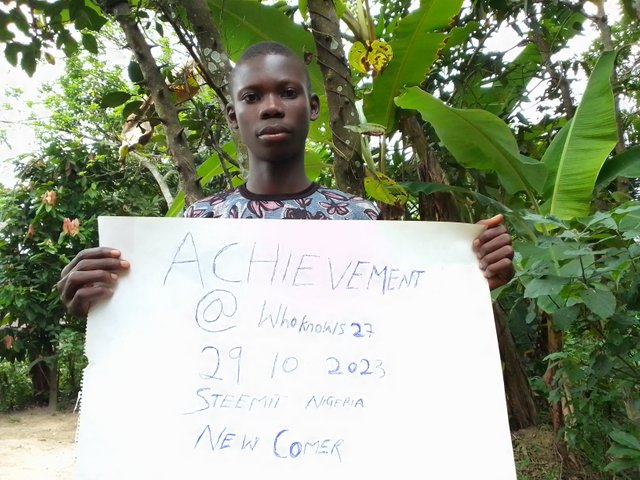 ACHIEVEMENT
@ Whoknows27
29 10 2023
STEEMIT NIGERIA
NEW COMER